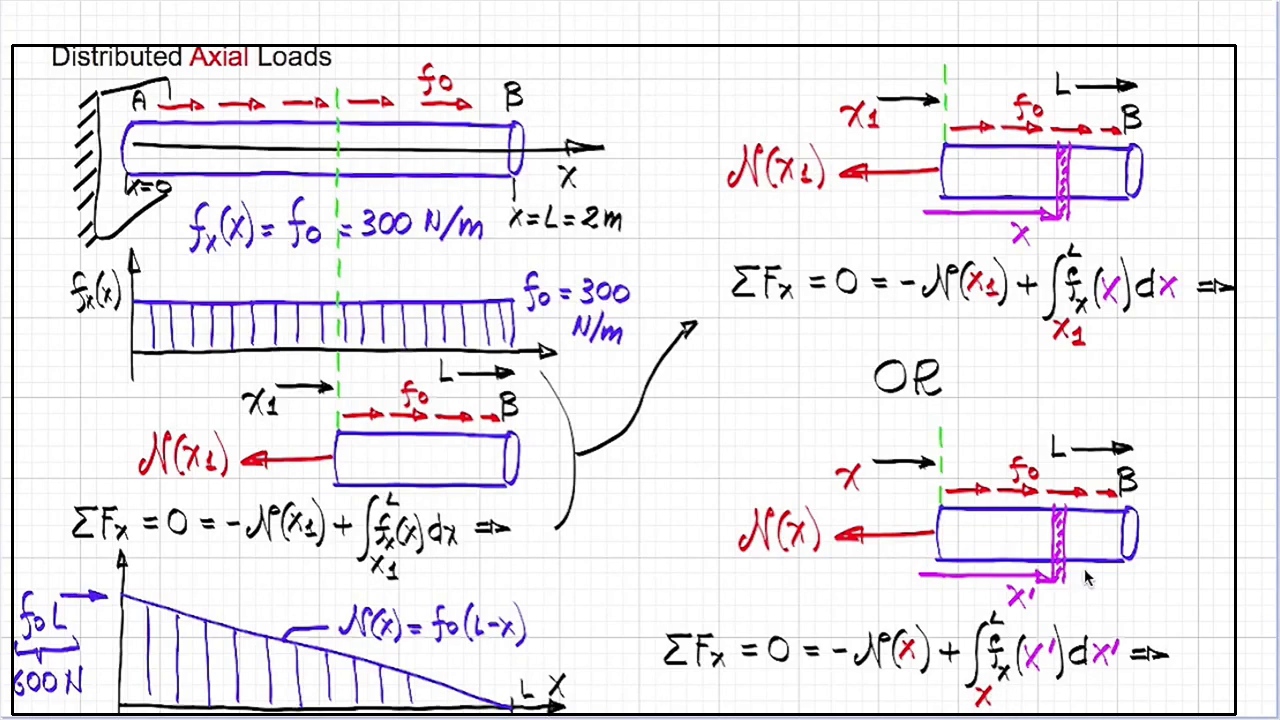 Distributed Axial Loads
A
f₀
B
x=0
x
fₓ(x) = f₀ = 300 N/m
x = L = 2m
fₓ(x)
f₀ = 300
N/m
x₁
L
f₀
B
N(x₁)
ΣFₓ = 0 = -N(x₁) + ∫_{x₁}^{L} fₓ(x) dx ⇒
f₀L
600 N
N(x) = f₀(L-x)
L
x
L
x₁
f₀
B
N(x₁)
x
ΣFₓ = 0 = -N(x₁) + ∫_{x₁}^{L} fₓ(x) dx ⇒
OR
L
x
f₀
B
N(x)
x'
ΣFₓ = 0 = -N(x) + ∫_{x}^{L} fₓ(x') dx' ⇒